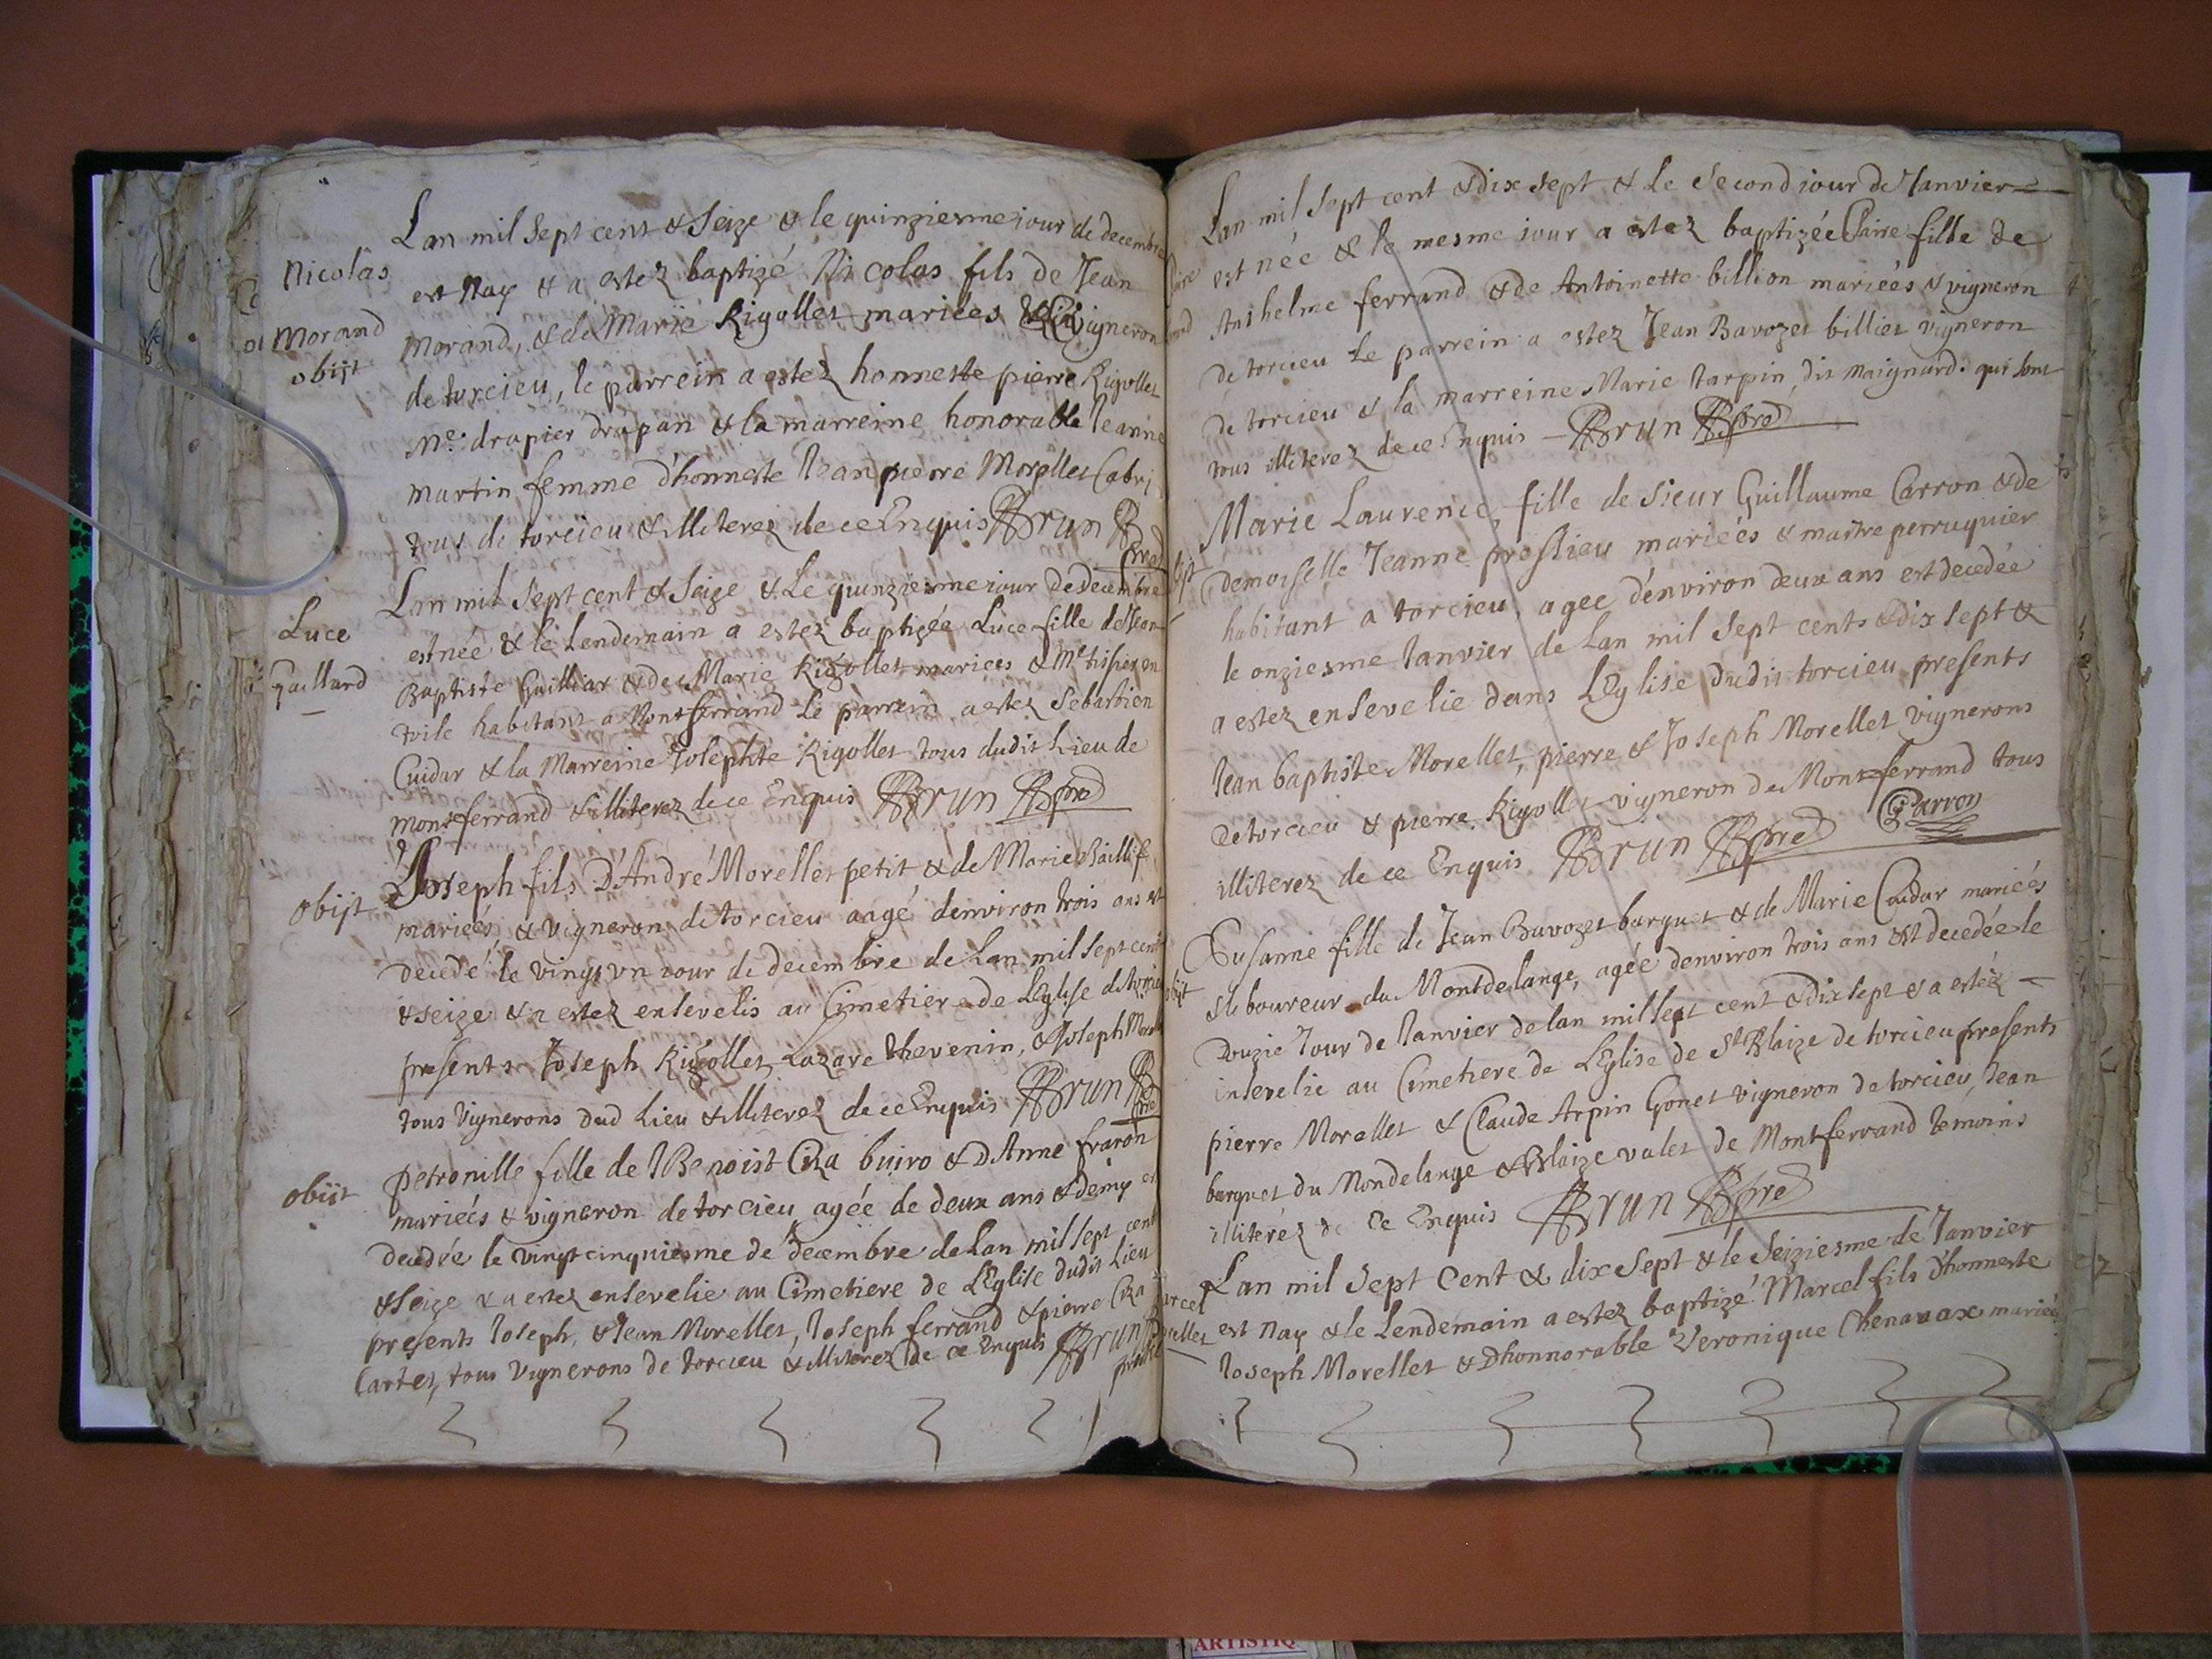 Lan mil Sept cent & Seize & le quinziesme iour de decembre
Nicolas
est Nay & a estez baptizé Nicolas fils de Jean
Morand
Morand, & de Marie Rigollet mariées & vigneron
obijt
de torcieu, le parrein a estez honneste pierre Rigollet
Me. drapier drapan & la marreine honorable Jeanne
martin femme d'honneste Jean pierre Morellet Cabri
tous de torcieu & illiterez de ce Enquis Brun
pre
Lan mil Sept cent & Seize & Le quinziesme iour de decembre
Luce
est née & le lendemain a estez baptizée Luce fille de Jean
Gaillard
Baptiste Guilliar & de Marie Rigollet mariees & Me tissier en
toile habitant a Montferrand Le parrein a estez Sebastien
Cuidar & la Marreine Josephte Rigollet tous dudit Lieu de
Montferrand & illiterez de ce Enquis Brun pre
Joseph fils D'André Morellet petit & de Marie Baillif
obijt
mariées & vigneron de torcieu aagé denviron trois ans est
decedé le vingt vn iour de decembre de Lan mil Sept cent
& seize & a estez ensevelis au Cimetiere de LEglise de torcieu
presents Joseph Rigollet, Lazare thevenin, & Joseph
tous Vignerons dud Lieu & illiterez de ce Enquis Brun
pre
petronille fille de Benoist Cra buiro & D'Anne fraron
obiit
mariées & vigneron de torcieu agée de deux ans & demy est
decedée le vingt cinquiesme de decembre de Lan mil Sept cent
& Seize & a estez ensevelie au Cimetiere de LEglise dudit Lieu
presents Joseph, & Jean Morellet, Joseph ferrand & pierre Cra
Cartet, tous Vignerons de torcieu & illiterez de ce Enquis Brun
Lan mil Sept cent & dix sept & Le Second iour de Janvier
est née & le mesme iour a estez baptizée Claire fille de
Anthelme ferrand & de Antoinette billion mariées & vigneron
de torcieu Le parrein a estez Jean Bavozet billiet vigneron
de torcieu & la marreine Marie tarpin dit Maignard. qui sont
tous illiterez de ce Enquis Brun pre
Marie Laurence, fille de Sieur Guillaume Carron & de
Demoiselle Jeanne preslieu mariées & maitre perruquier
habitant a torcieu, agee d'environ deux ans est decedée
le onziesme Janvier de Lan mil Sept cents & dix sept &
a estez ensevelie dans LEglise dudit torcieu presents
Jean baptiste Morellet, pierre & Joseph Morellet vignerons
de torcieu & pierre Rigollet vigneron de Montferrand tous
illiterez de ce Enquis Brun pre Carron
Susanne fille de Jean Bavozet barquet & de Marie Cuidar mariées
obijt
& laboureur du Montdelange, agée denviron trois ans est decedée le
Douzie Jour de Janvier de lan mil Sept cent & dix sept & a estez
ensevelie au Cimetiere de LEglise de St Blaize de torcieu presents
pierre Morellet & Claude Arpin Gonet vigneron de torcieu, Jean
barquet du Mondelange & Blaize valet de Montferrand temoins
illiterez de ce Enquis Brun pre
Lan mil Sept Cent & dix Sept & le Seiziesme de Janvier
est Nay & le Lendemain a estez baptizé Marcel fils d'honneste
Joseph Morellet & D'honnorable Veronique Chenavax mariées
ARTISTIQ